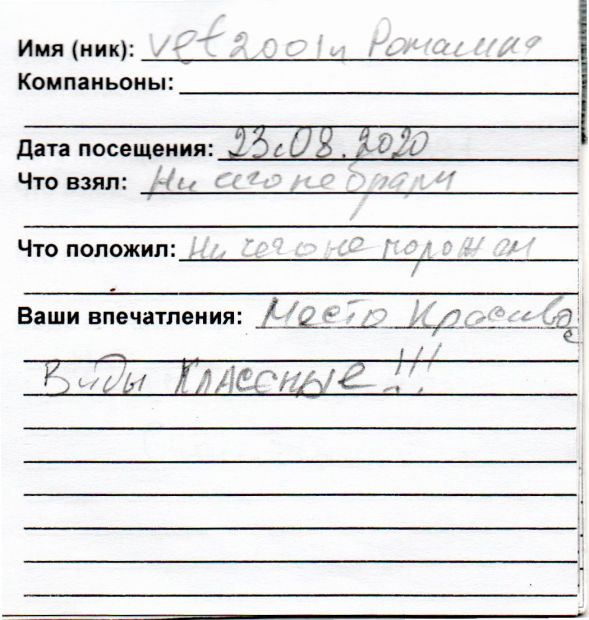 Имя (ник): vet2001и Ромашка
Компаньоны:
Дата посещения: 23.08.2020
Что взял: Ни чего не брали
Что положил: Ни чего не положили
Ваши впечатления: Место Красивое
Виды Классные!!!